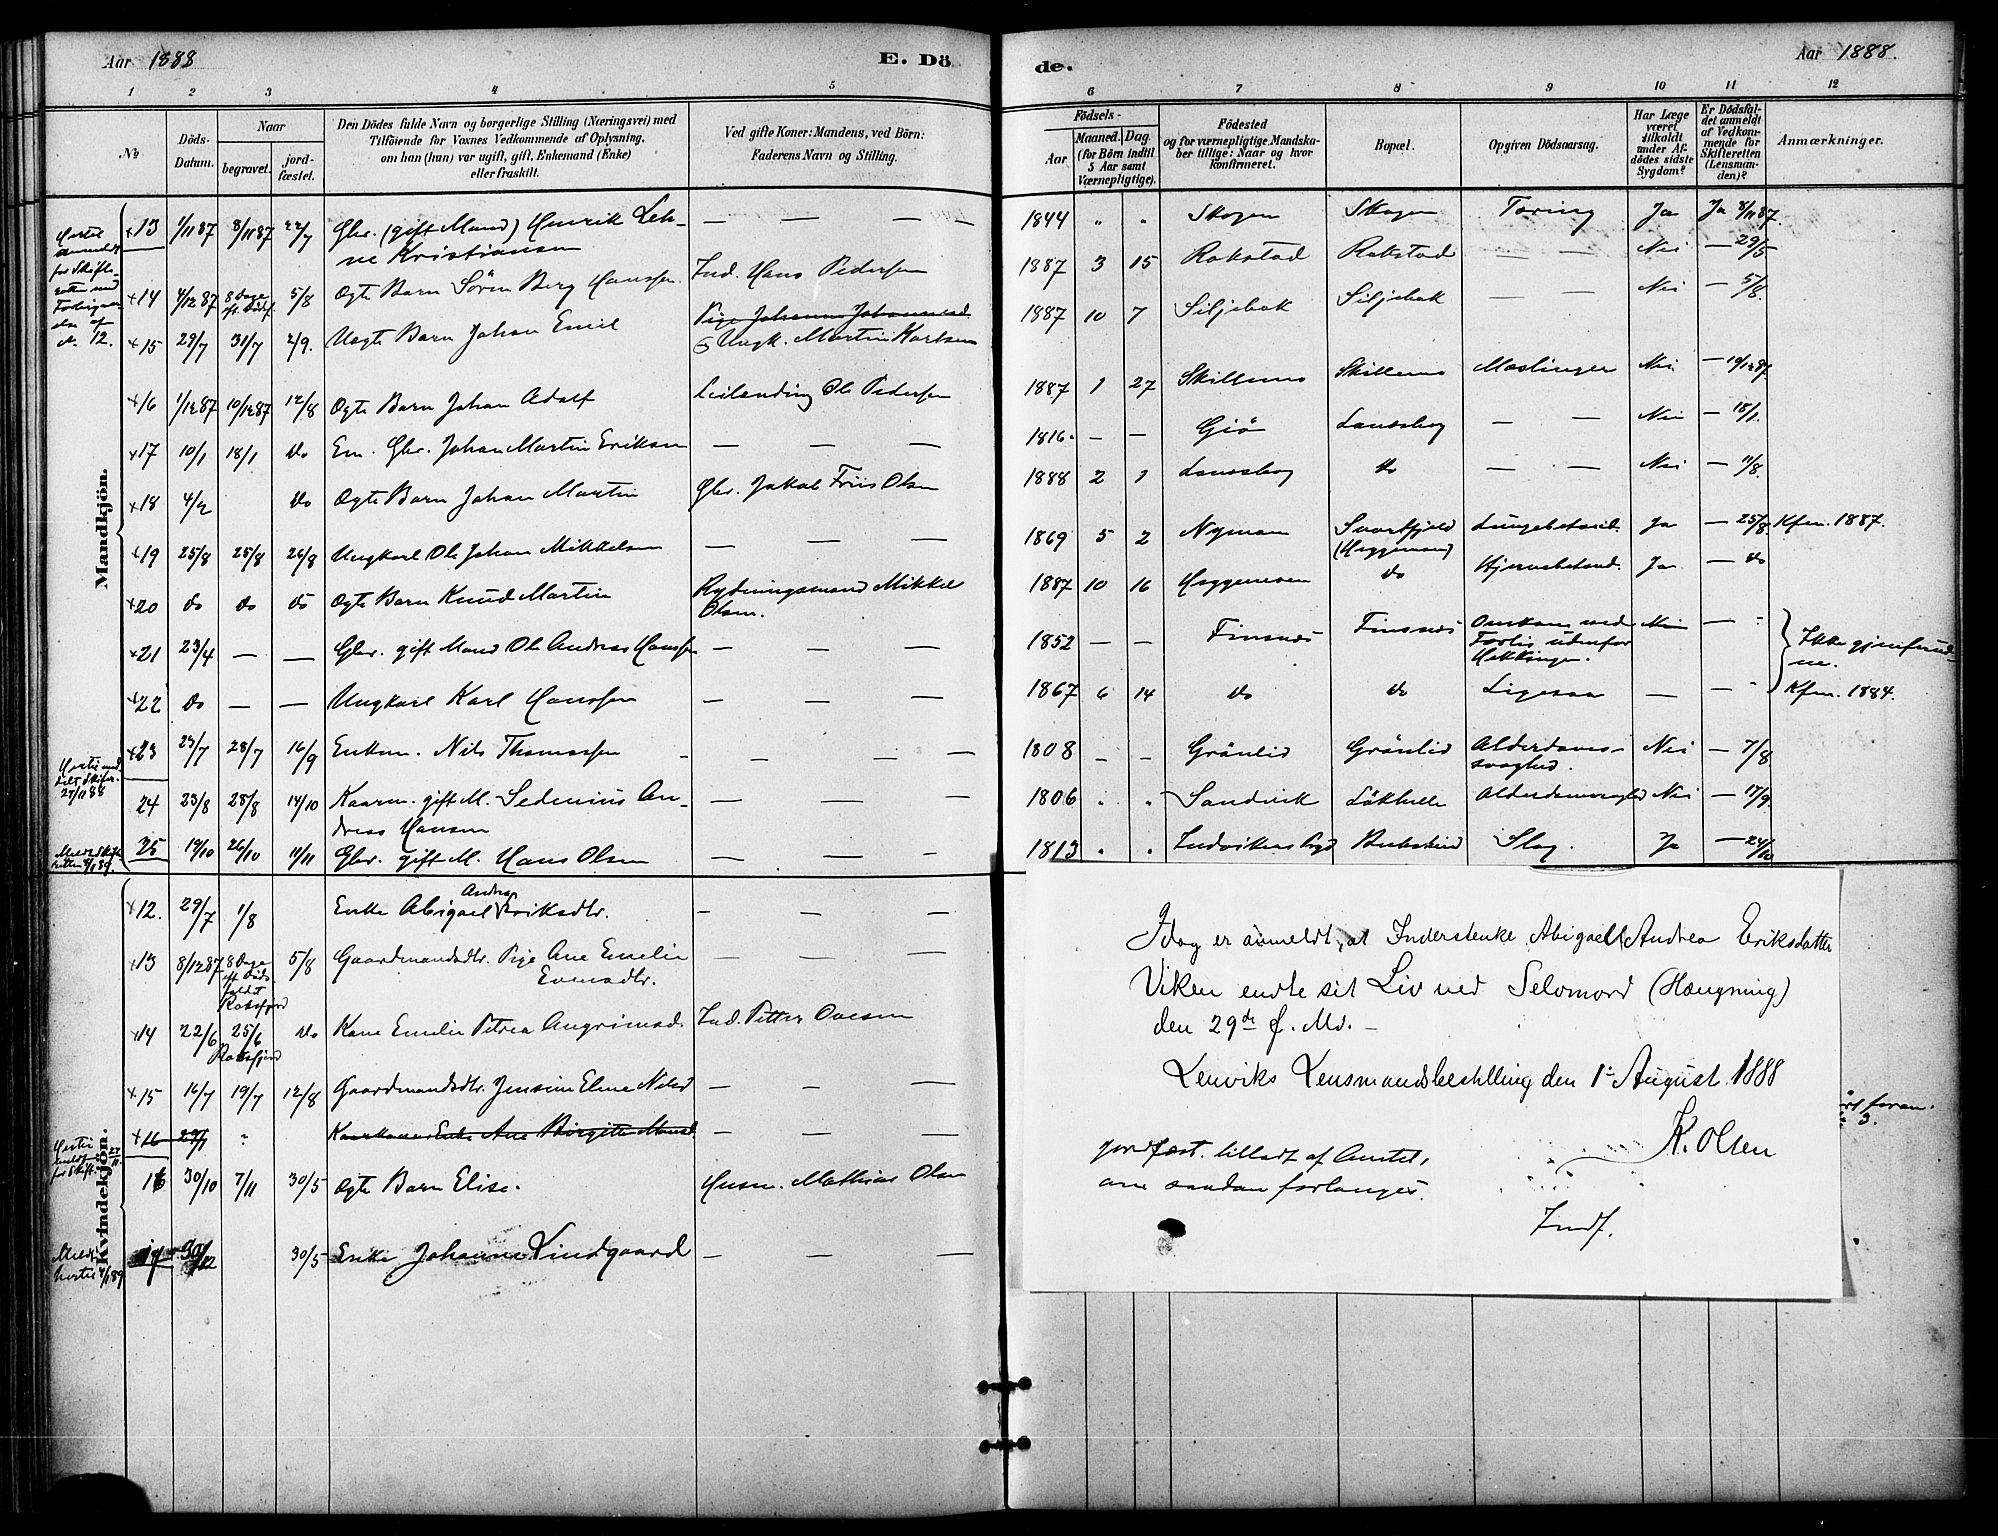 Aar 1888
E. Dö
de.
Aar 1888.
1 2 3 4 5
6 7 8 9 10 11 12
No
Döds-Datum.
Naar
begravet.
jord-fæstet.
Den Dödes fulde Navn og borgerlige Stilling (Næringsvei) med
Tilföiende for Voxnes Vedkommende af Oplysning,
om han (hun) var ugift, gift, Enkemand (Enke)
eller fraskilt.
Ved gifte Koner: Mandens, ved Börn:
Faderens Navn og Stilling.
Födsels-
Aar
Maaned. Dag.
(for Börn indtil
5 Aar samt
Værnepligtige).
Födested
og for værnepligtige Mandska-
ber tillige: Naar og hvor
konfirmeret.
Bopæl.
Opgiven Dödsaarsag.
Har Læge
været
tilkaldt
under Af-
dödes sidste
Sygdom?
Er Dödsfal-
det anmeldt
af Vedkom-
mende for
Skifteretten
(Lensman-
den)?
Anmærkninger.
Mandkjön.
+13 1/11 87 8/11 87 22/7 Gbr. (gift Mand) Henrik Leh-
ne Kristiansen — — — 1844 " " Skogen Skogen Tæring Ja Ja 8/11 87.
+14 4/12 87 8 Dage eft. Dödsf. 5/8 Ægte Barn Sören Berg Hanssen Ind. Hans Pedersen 1887 3 15 Rakstad Rakstad — — Nei — 29/5
+15 29/7 31/7 2/9. Uægte Barn Johan Emil Pige Johanna Johannesd.
Ungk. Martin Karlsen 1887 10 7 Siljebak Siljebak — — Nei — 5/8.
+16 1/12 87 10/12 87 12/8 Ægte Barn Johan Adolf Leilænding Ole Pedersen 1887 1 27 Mæslinger Nei — 19/12 87.
+17 10/1 18/1 do Em. Gbr. Johan Martin Eriksen — — — 1816. — — Giö — — Nei — 18/1.
+18 4/2 do Ægte Barn Johan Martin Gbr. Jakob Friis Olsen 1888 2 1 do — — Nei — 11/8.
+19 25/8 25/8 26/8 Ungkarl Ole Johan Mikkelsen — — — 1869 5 2 Nymoen Svartfjeld
Lungebetænd. Ja — 25/8. Kfm. 1887.
+20 do do do Ægte Barn Knud Martin Rydningsmand Mikkel
Olsen. 1887 10 16 Heggemoen do Hjernebetænd. Ja — do
+21 23/4 — — Gbr. gift Mand Ole Andreas Hanssen — — — 1852 — — Finsnæs Finsnæs Omkom ved
Forlis udenfor
Hekkingen. Nei — Ikke gjenfund-
ne.
+22 do — — Ungkarl Karl Hanssen — — — 1867 6 14 do do Ligesaa — — Kfm. 1884.
+23 23/7 28/7 16/9 Enkem. Nils Thomassen — — 1808 — — Grönlid Grönlid Alderdoms-
svaghed. Nei — 7/8
24 23/8 28/8 14/10 Kaarm. gift M. Sedenius An-
dreas Hansen — — — 1806 " " Sandvik Løkhelle Alderdomssvaghed Nei — 17/9
25 19/10 26/10 11/11 Gbr. gift M. Hans Olsen — — — 1813 " " Slag. Ja — 24/10
Kvindekjön.
+12. 29/7 1/8 Enke Abigael Andrea Eriksdtr. — — —
+13 8/12 87 8 Dage eft. Dödsfaldet Roksfjord 5/8 Gaardmandsdtr. Pige Ane Emelie
Evensdtr. — — —
+14 22/6 25/6 Roksfjord do Kone Emelie Petrea Angrimsd. Ind. Petter Ovesen
+15 16/7 19/7 12/8 Gaardmandsdtr. Jensine Eline Nilsd — — —
+16 29/7 " Enke Ane Birgitte
16 30/10 7/11 30/5 Ægte Barn Elise. Husm. Mathias Olsen
17 30/12 30/5 Enke Johanne Lindgaard — — —
Idag er anmeldt, at Inderstenke Abigael Andrea Eriksdatter
Viken endte sit Liv ved Selvmord (Hængning)
den 29de f. Md. —
Lenviks Lensmandsbestilling den 1te August 1888
K. Olsen
jordfæst. tilladt af Amtet,
om saadan forlanges.
3.